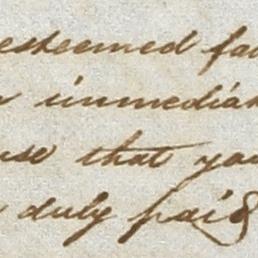 esteemed fa
immedia
use that you
duly paid